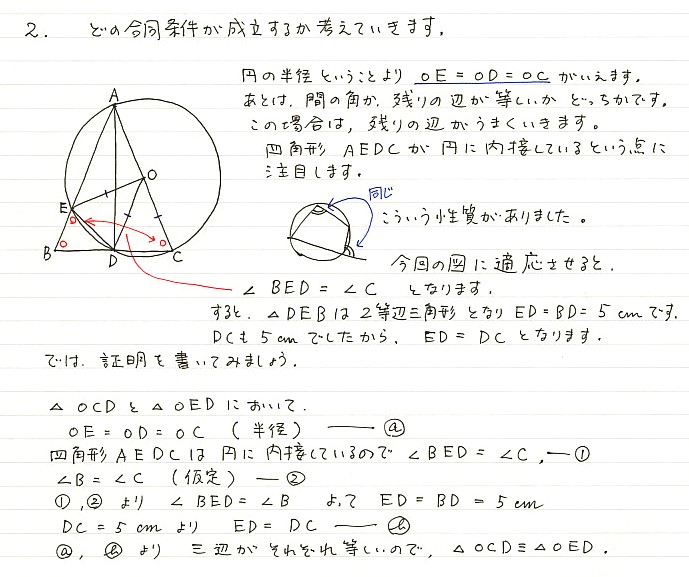 2. どの合同条件が成立するか考えていきます。
円の半径ということより OE = OD = OC がいえます。
あとは、間の角か、残りの辺が等しいか どっちかです。
この場合は、残りの辺がうまくいきます。
四角形 AEDC が 円に内接しているという点に
注目します。
A
O
E
B
D
C
同じ
こういう性質がありました。
今回の図に適応させると、
∠BED = ∠C となります。
すると、△DEBは2等辺三角形となり ED = BD = 5 cm です。
DCも 5 cm でしたから、 ED = DC となります。
では、証明を書いてみましょう。
△OCD と △OED において、
OE = OD = OC (半径) ―― ⓐ
四角形 AEDC は 円に内接しているので ∠BED = ∠C, ― ①
∠B = ∠C (仮定) ― ②
①,② より ∠BED = ∠B よって ED = BD = 5 cm
DC = 5 cm より ED = DC ―― ⓑ
ⓐ, ⓑ より 三辺がそれぞれ等しいので, △OCD ≡ △OED.